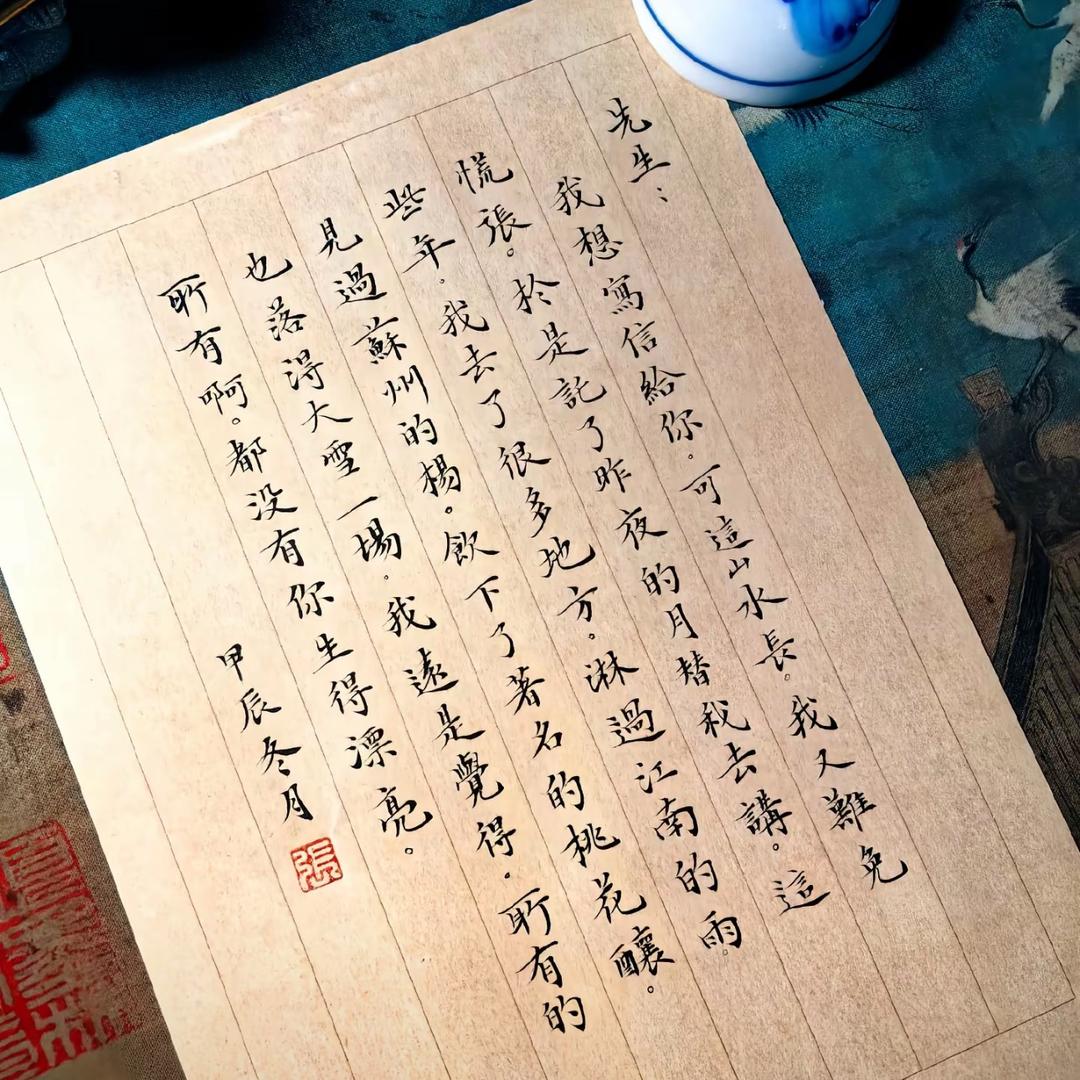 先生：
我想寫信給你。可這山水長。我又難免
慌張。於是託了昨夜的月替我去講。這
些年。我去了很多地方。淋過江南的雨。
見過蘇州的楊。飲下了著名的桃花釀。
也落得大雪一場。我遠是覺得。所有的
所有啊。都没有你生得漂亮。
甲辰冬月
張